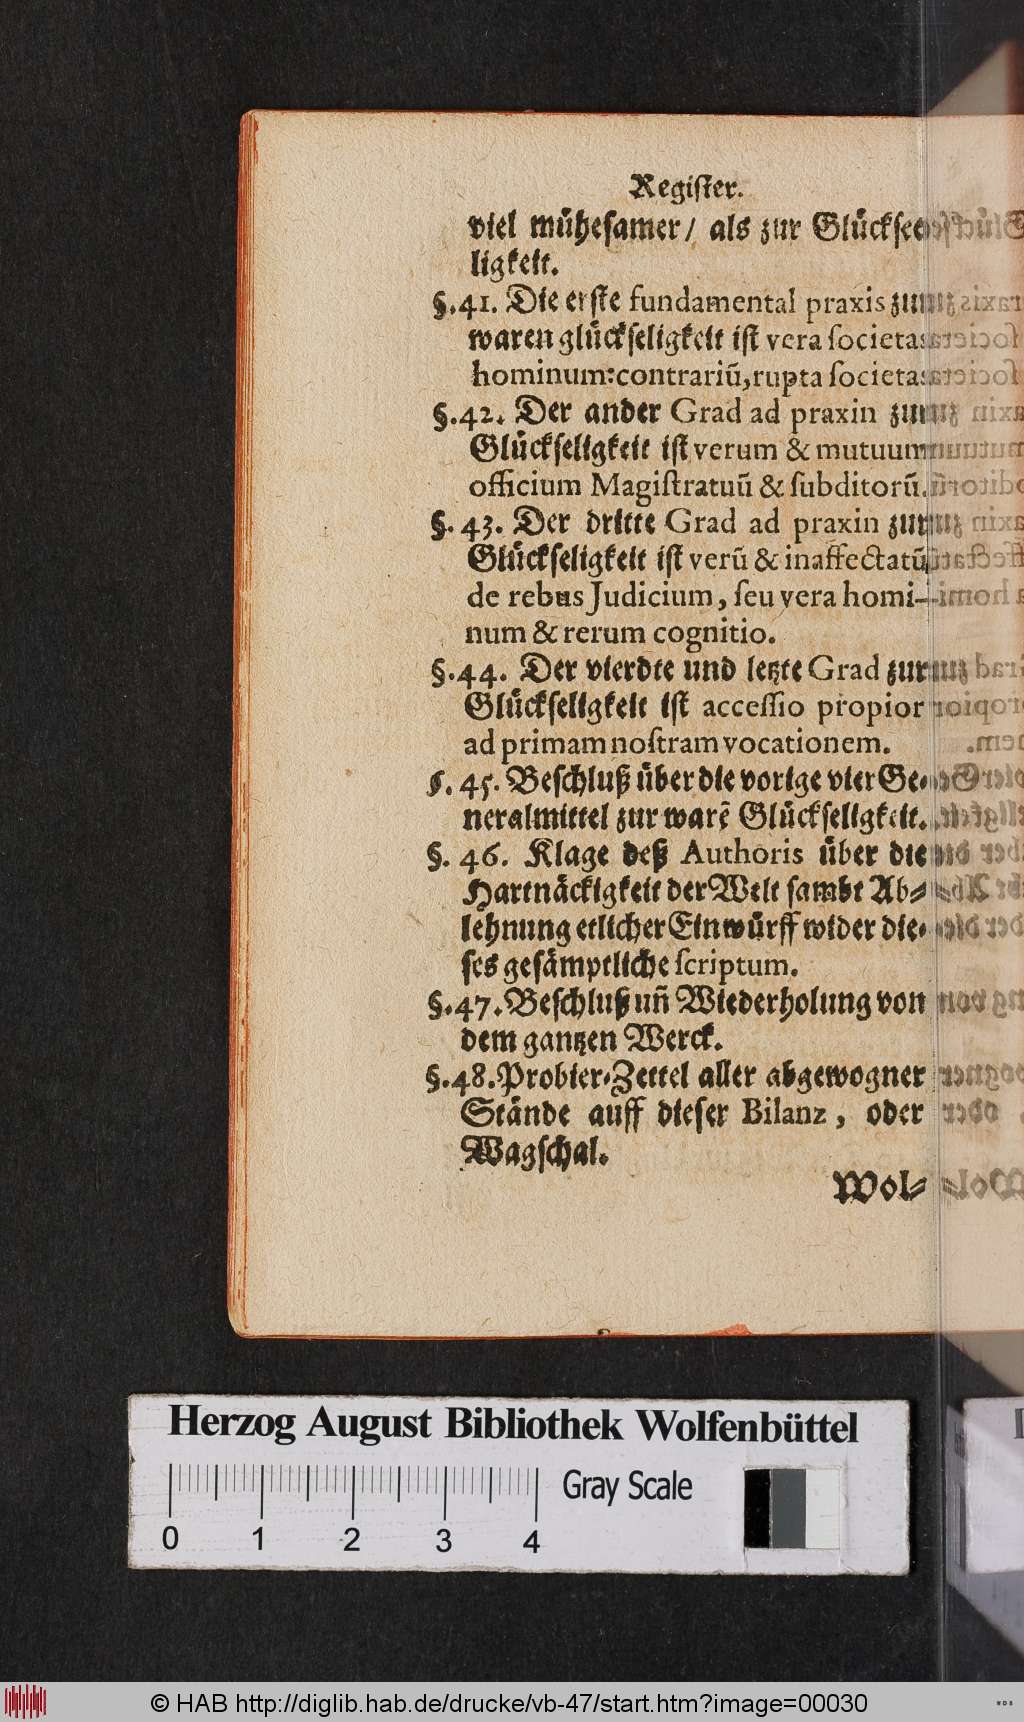 Register.
viel mühesamer/ als zur Glücksee⸗
ligkeit.
§.41. Die erste fundamental praxis zur
waren glückseligkeit ist vera societas
hominum: contrariū, rupta societas
§.42. Der ander Grad ad praxin zur
Glückseligkeit ist verum & mutuum
officium Magistratuū & subditorū.
§. 43. Der dritte Grad ad praxin zur
Glückseligkeit ist verū & inaffectatū
de rebus Judicium, seu vera homi-
num & rerum cognitio.
§.44. Der vierdte und letzte Grad zur
Glückseligkeit ist accessio propior
ad primam nostram vocationem.
§. 45. Beschluß über die vorige vier Ge⸗
neralmittel zur warē Glückseligkeit.
§. 46. Klage deß Authoris über die
Hartnäckigkeit der Welt sambt Ab⸗
lehnung etlicher Einwürff wider die⸗
ses gesämptliche scriptum.
§.47. Beschluß uñ Wiederholung von
dem gantzen Werck.
§.48. Probier⸗Zettel aller abgewogner
Stände auff dieser Bilanz, oder
Wagschal.
Wol⸗
Herzog August Bibliothek Wolfenbüttel
Gray Scale
0 1 2 3 4
© HAB http://diglib.hab.de/drucke/vb-47/start.htm?image=00030
WDB